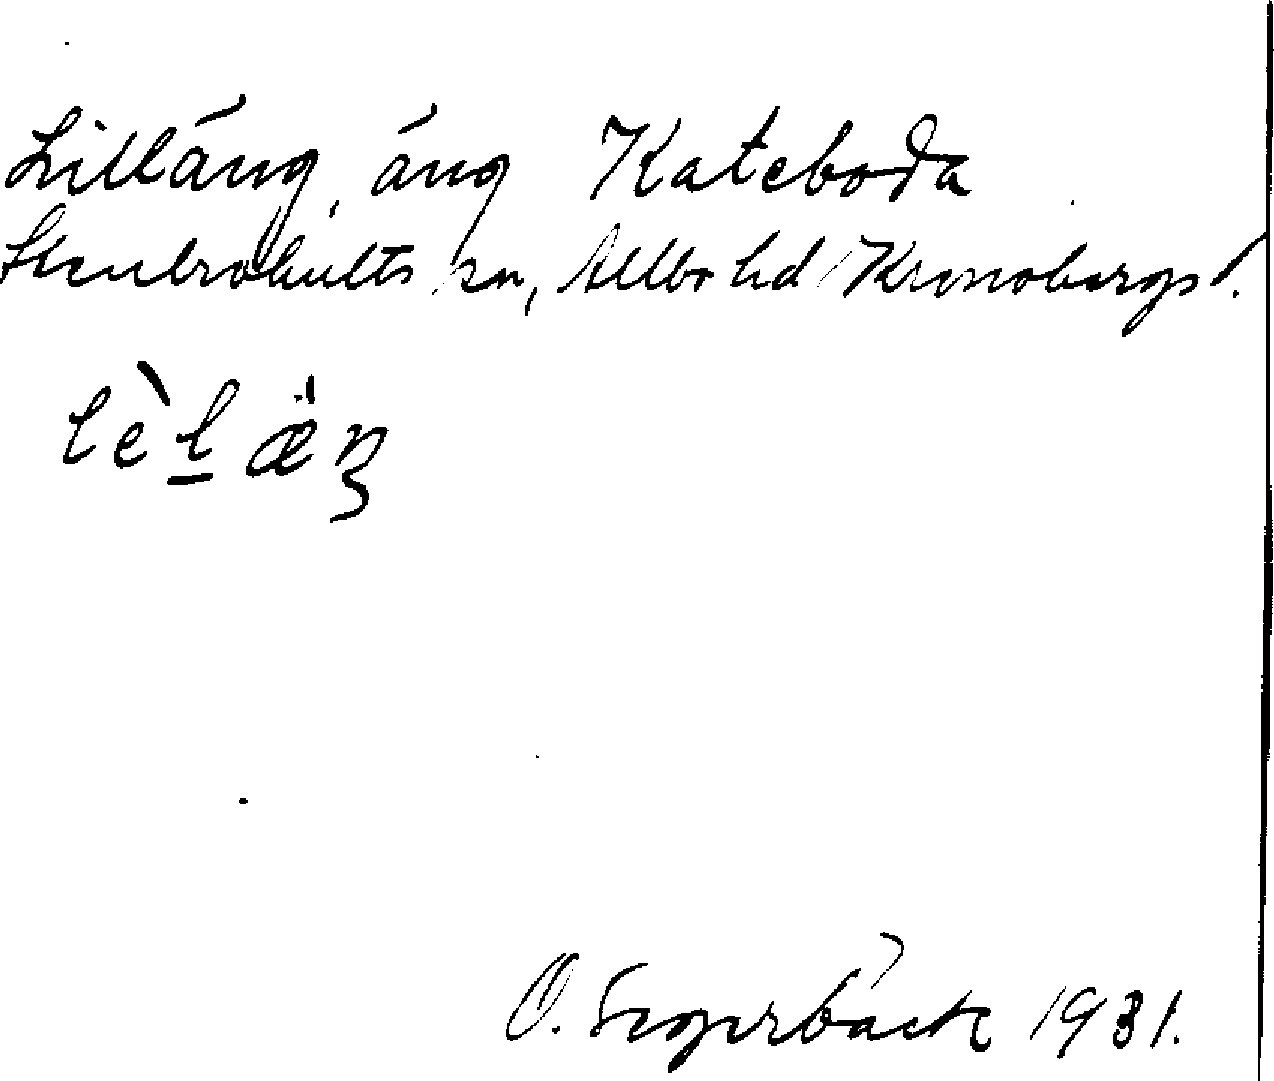 Lilläng, äng Kateboda
Stenbrohults sn, Allbo hd Kronobergs l.
lèl̲ äŋ
O. Segerbäck 1931.